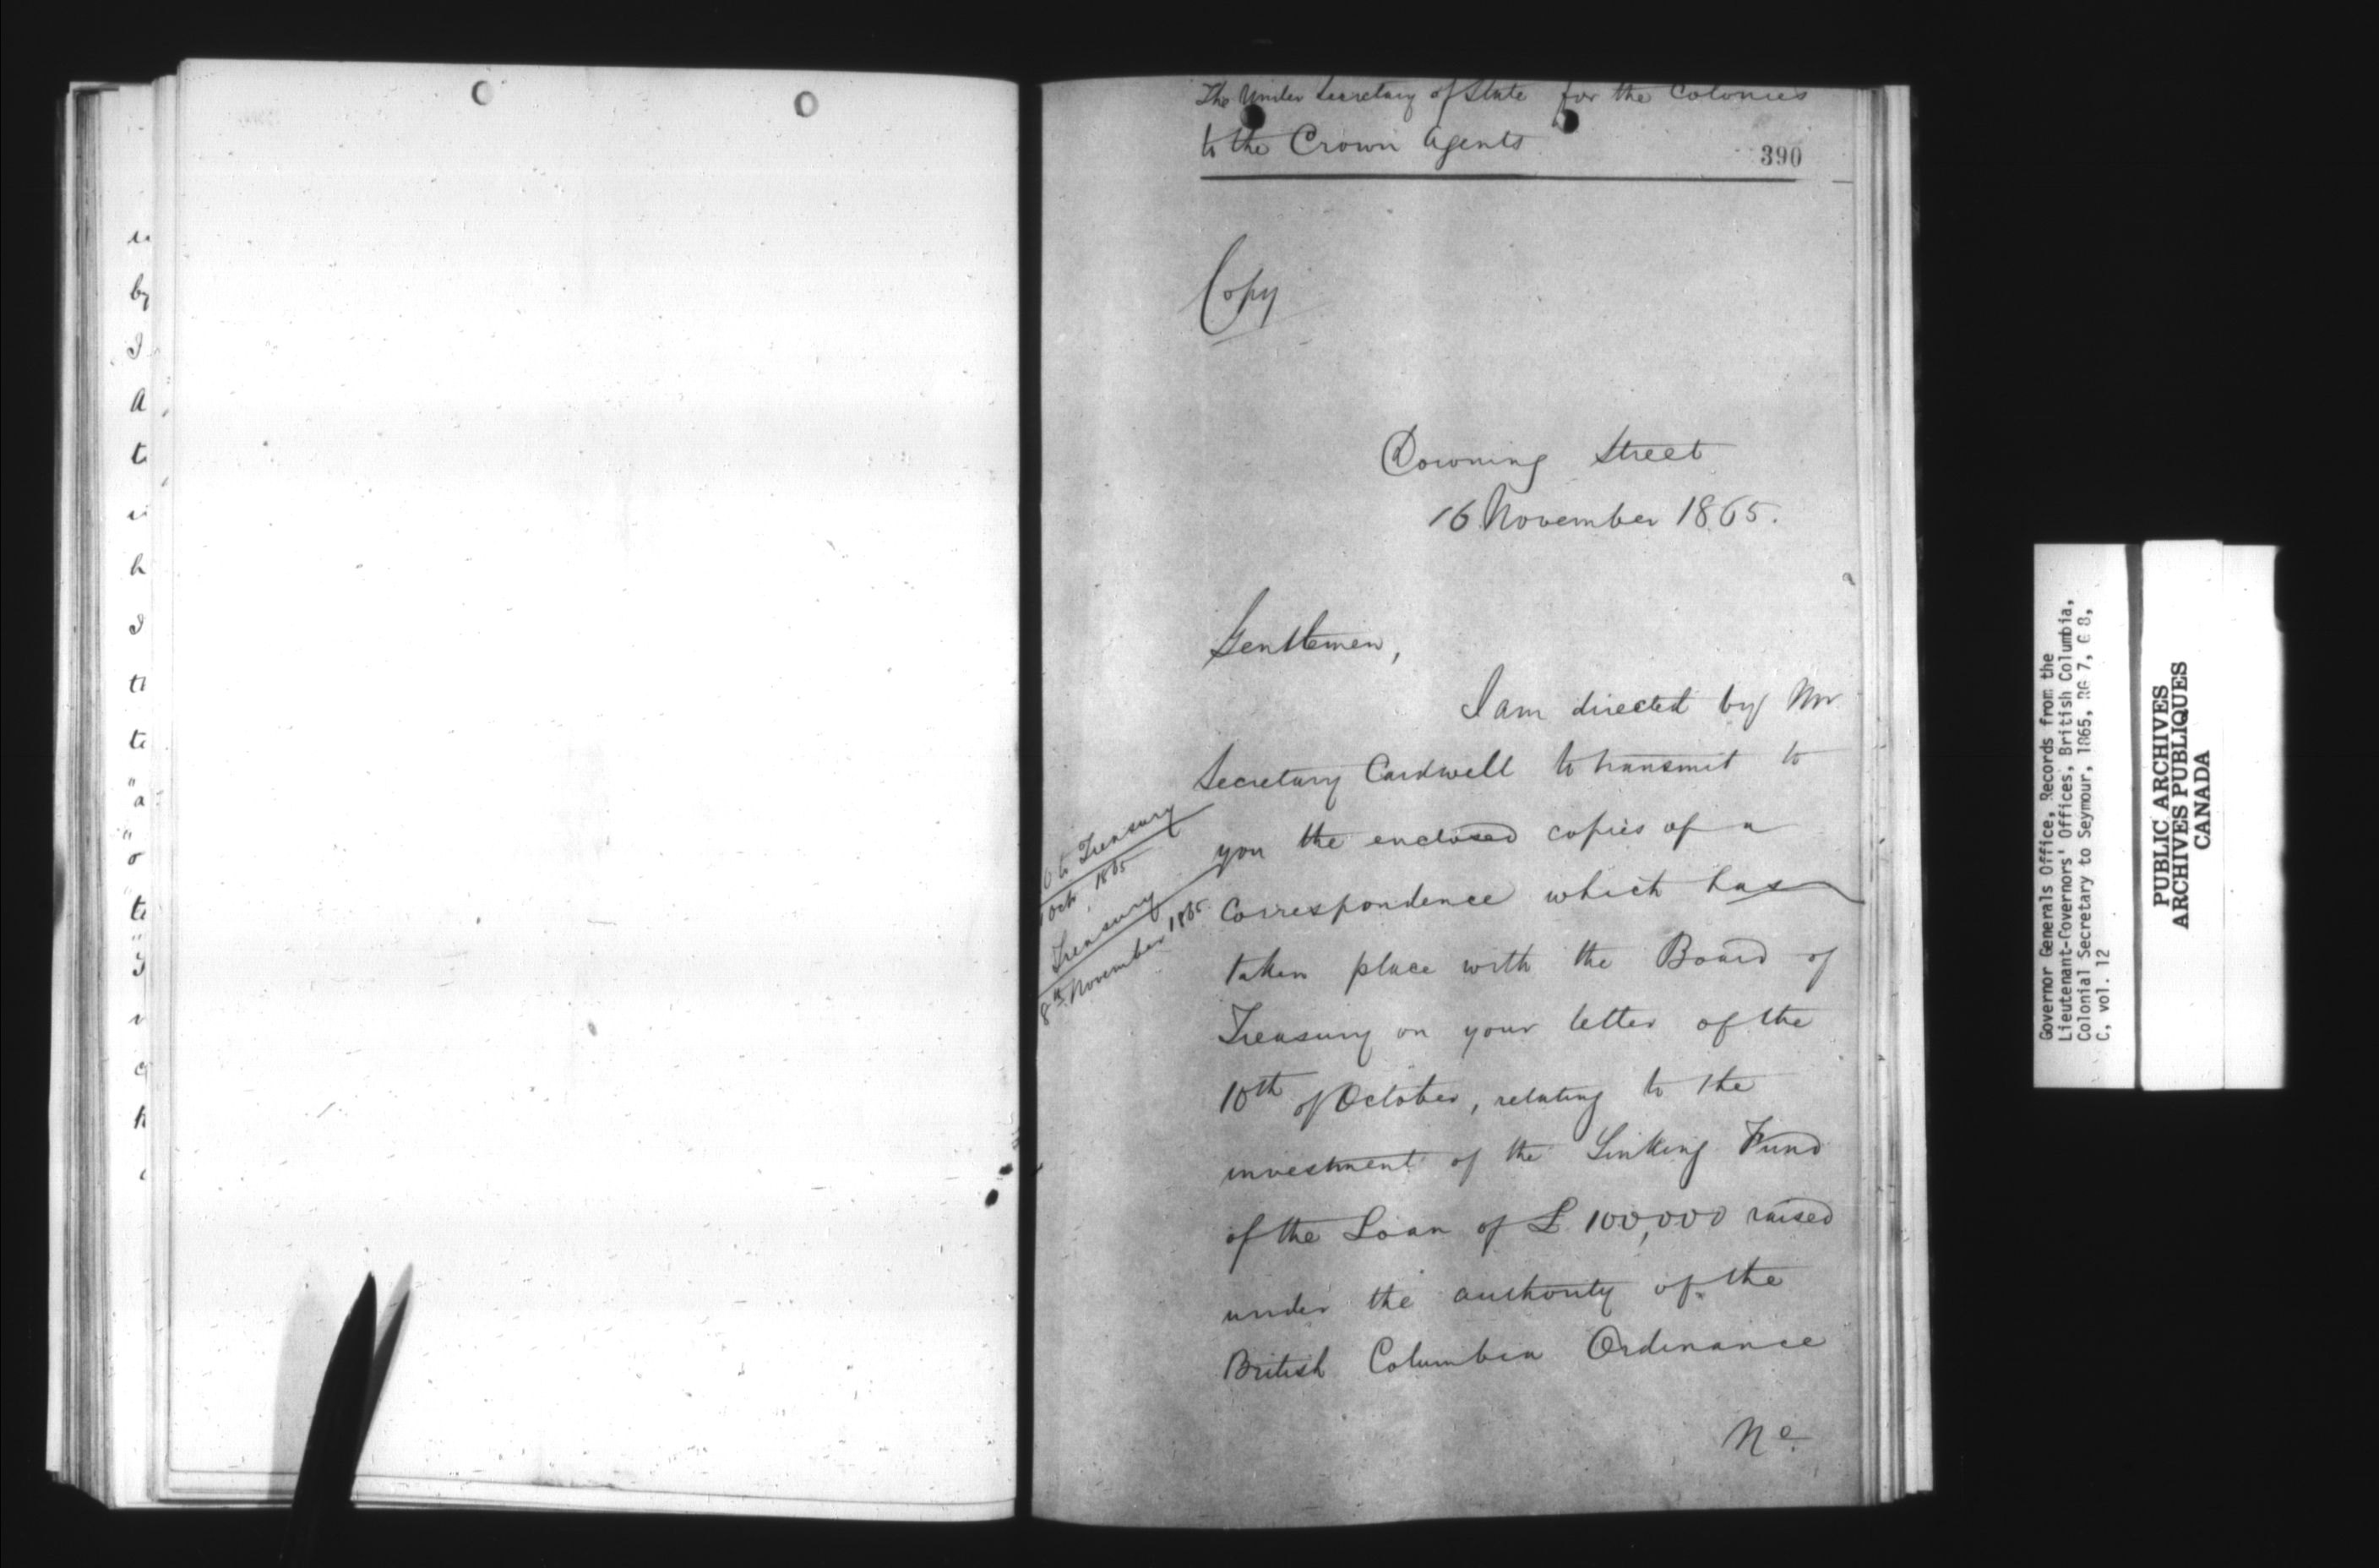 The Under Secretary of State for the Colonies
to the Crown Agents
390
Copy
Downing Street
16 November 1865.
Gentlemen,
I am directed by Mr
Secretary Cardwell to transmit to
you the enclosed copies of a
Correspondence which has
taken place with the Board of
Treasury on your letter of the
10th of October, relating to the
investment of the Sinking Fund
of the Loan of £100,000 raised
under the authority of the
British Columbia Ordinance
No.
to Treasury
Oct. 1865
Treasury
8th November 1865.
Governor Generals Office, Records from the
Lieutenant-Governors' Offices, British Columbia,
Colonial Secretary to Seymour, 1865, RG 7, G 8,
C, vol. 12
PUBLIC ARCHIVES
ARCHIVES PUBLIQUES
CANADA